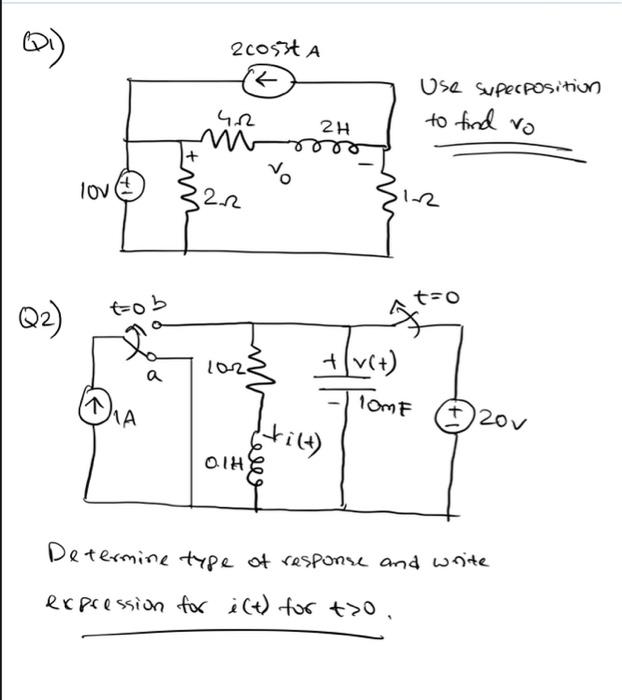 Q1)
2cos5t A
Use superposition
to find vo
4Ω
2H
+
vo
-
10V
+
-
2Ω
1Ω
Q2)
t=0
b
t=0
a
10Ω
+
v(t)
-
10mF
1A
i(t)
0.1H
+
-
20V
Determine type of response and write
expression for i(t) for t>0.